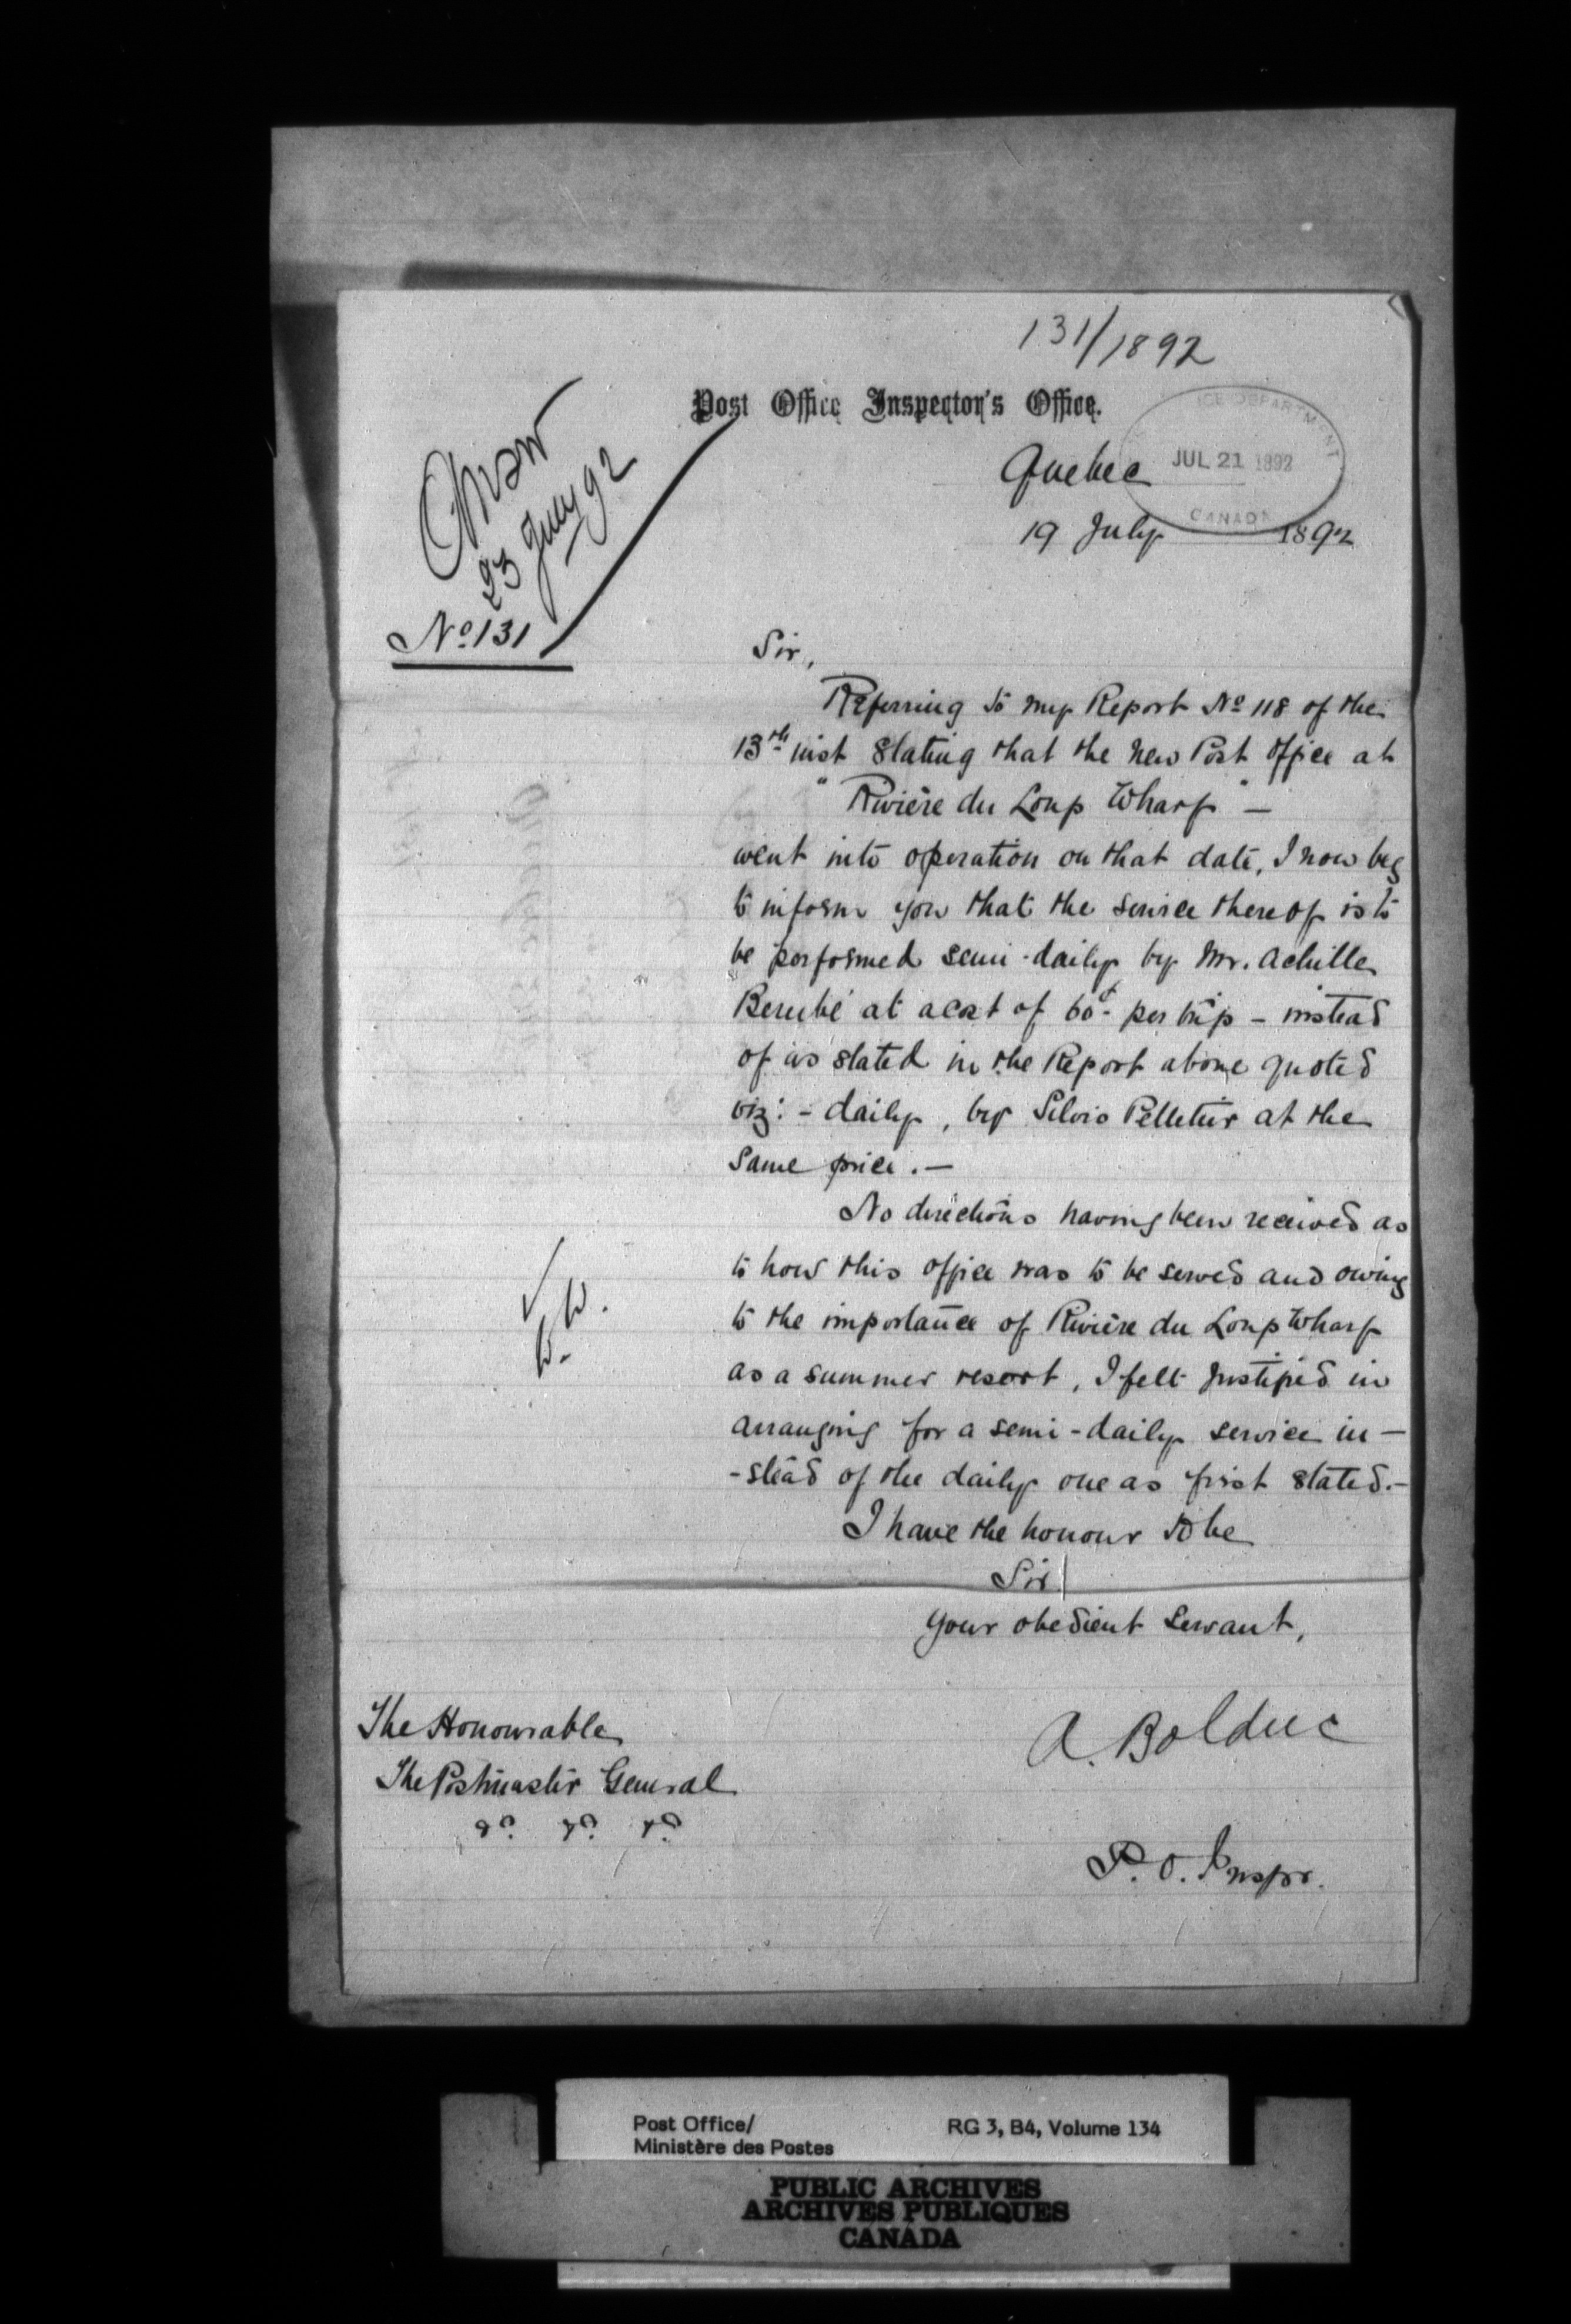 131/1892
Post Office Inspector's Office.
ICE DEPARTMENT
JUL 21 1892
CANADA
Quebec
19 July 1892
23 July 92
No 131
Sir,
Referring to my Report No 118 of the
13th inst stating that the new Post Office at
"Rivière du Loup Wharf" —
went into operation on that date, I now beg
to inform you that the service thereof is to
be performed semi-daily by Mr. Achille
Berubé at a cost of 60¢ per trip — instead
of as stated in the Report above quoted
viz: - daily, by Silvio Pelletier at the
same price. —
No directions having been received as
to how this office was to be served and owing
to the importance of Rivière du Loup Wharf
as a summer resort, I felt justified in
arranging for a semi-daily service in -
-stead of the daily one as first stated. -
I have the honour to be
Sir
Your obedient servant,
The Honourable
The Postmaster General
A. Bolduc
P. O. Inspr.
Post Office/
Ministère des Postes
RG 3, B4, Volume 134
PUBLIC ARCHIVES
ARCHIVES PUBLIQUES
CANADA